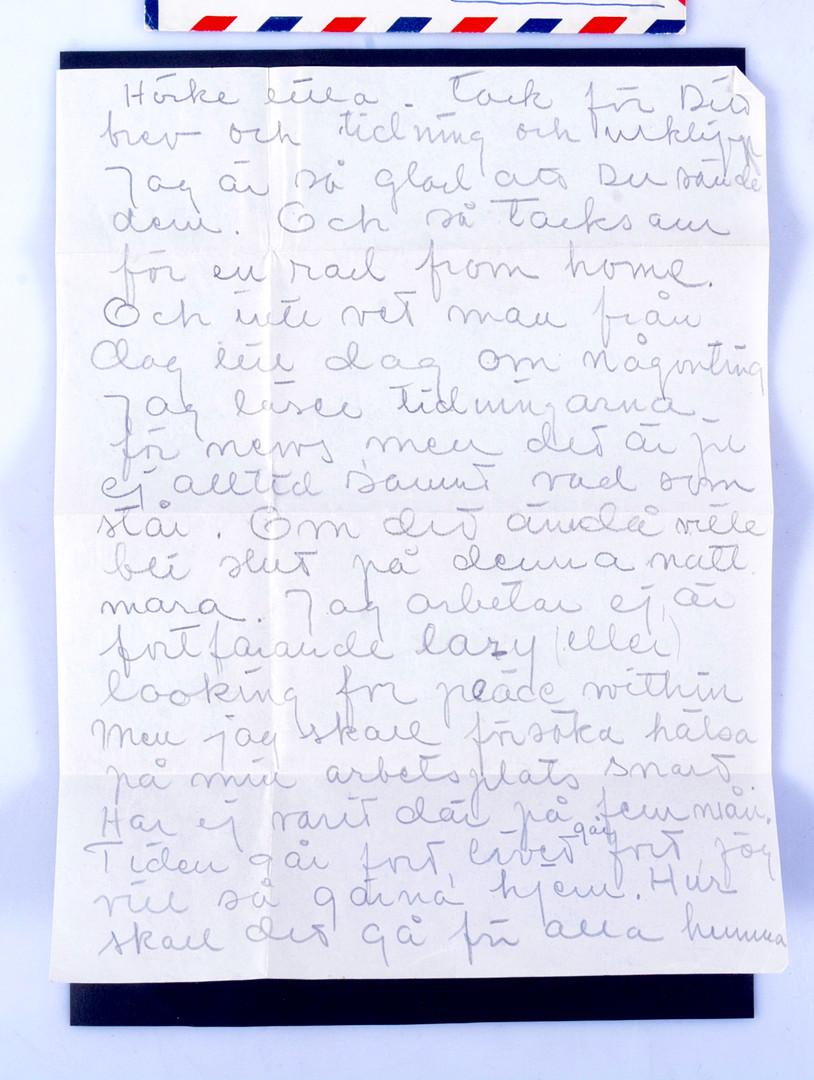 Hörke lilla. Tack för Ditt
brev och tidning och urklipp
Jag är så glad att Du sände
dem. Och så tacksam
för en rad from home.
Och inte vet man från
dag till dag om någonting
Jag läser tidningarna
för news, men det är ju
ej alltid sannt vad som
står. Om det ändå ville
bli slut på denna natt
mara. Jag arbetar ej, är
fortfarande lazy (eller)
looking for peace within
Men jag skall försöka hälsa
på min arbetsplats snart.
Har ej varit där på fem mån.
Tiden går fort, livet går fort, jag
vill så gärna hjem. Hur
skall det gå för alla humma